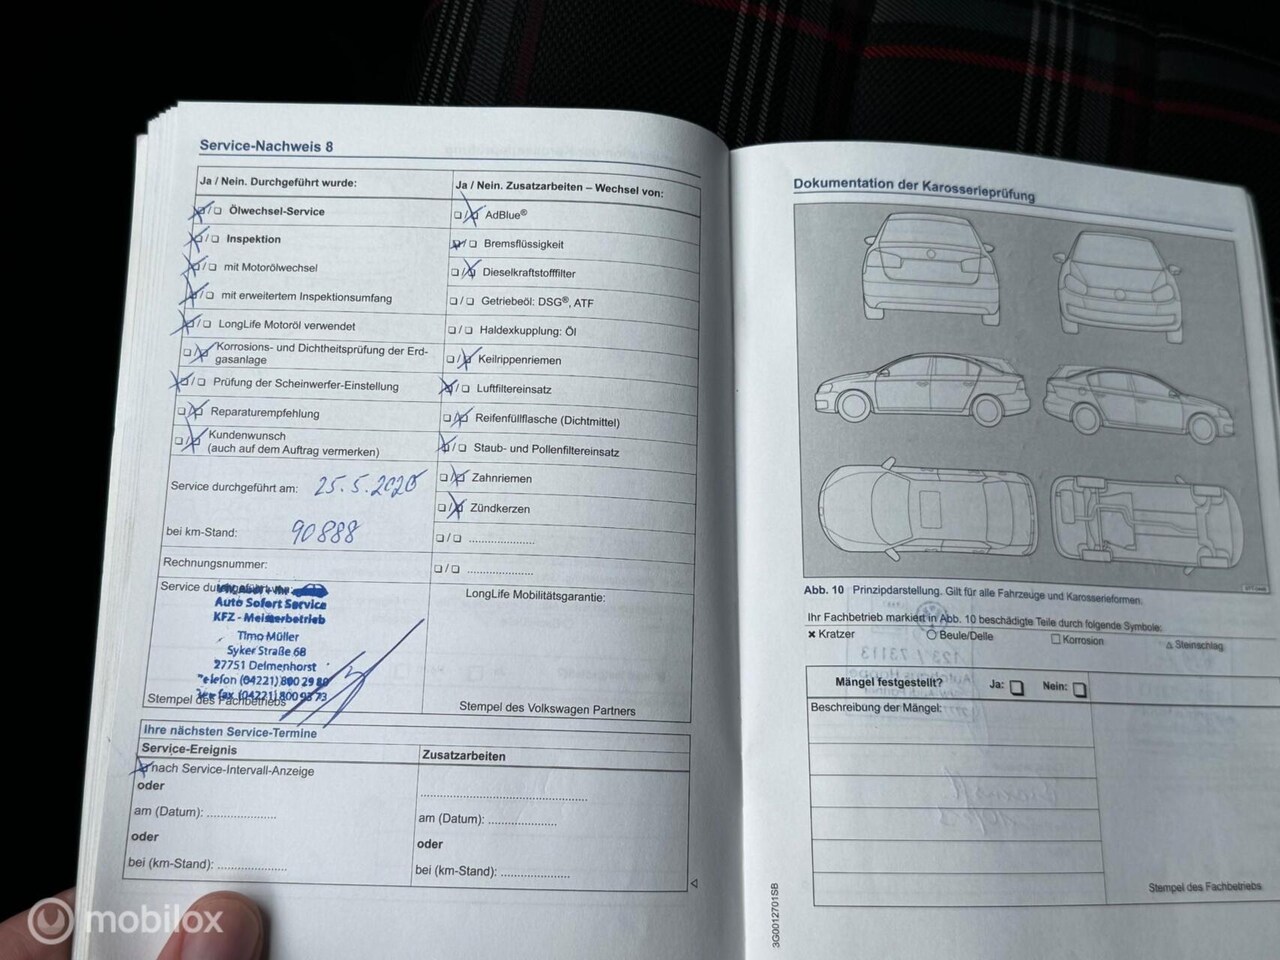 Service-Nachweis 8
Ja / Nein. Durchgeführt wurde:
❑/❑ Ölwechsel-Service
❑/❑ Inspektion
❑/❑ mit Motorölwechsel
❑/❑ mit erweitertem Inspektionsumfang
❑/❑ LongLife Motoröl verwendet
❑/❑ Korrosions- und Dichtheitsprüfung der Erd-
gasanlage
❑/❑ Prüfung der Scheinwerfer-Einstellung
❑/❑ Reparaturempfehlung
❑/❑ Kundenwunsch
(auch auf dem Auftrag vermerken)
Service durchgeführt am: 25.5.2020
bei km-Stand: 90888
Rechnungsnummer:
Service
Auto Sofort Service
KFZ - Meisterbetrieb
Timo Müller
Syker Straße 68
27751 Delmenhorst
Telefon (04221) 800 29 80
Telefax (04221) 800 93 73
Stempel des Fachbetriebs
Ja / Nein. Zusatzarbeiten – Wechsel von:
❑/❑ AdBlue®
❑/❑ Bremsflüssigkeit
❑/❑ Dieselkraftstofffilter
❑/❑ Getriebeöl: DSG®, ATF
❑/❑ Haldexkupplung: Öl
❑/❑ Keilrippenriemen
❑/❑ Luftfiltereinsatz
❑/❑ Reifenfüllflasche (Dichtmittel)
❑/❑ Staub- und Pollenfiltereinsatz
❑/❑ Zahnriemen
❑/❑ Zündkerzen
❑/❑ .....................
❑/❑ .....................
LongLife Mobilitätsgarantie:
Stempel des Volkswagen Partners
Ihre nächsten Service-Termine
Service-Ereignis
❑ nach Service-Intervall-Anzeige
oder
am (Datum): .....................
oder
bei (km-Stand): .....................
Zusatzarbeiten
..................................................
am (Datum): .....................
oder
bei (km-Stand): .....................
Dokumentation der Karosserieprüfung
Abb. 10 Prinzipdarstellung. Gilt für alle Fahrzeuge und Karosserieformen.
Ihr Fachbetrieb markiert in Abb. 10 beschädigte Teile durch folgende Symbole:
× Kratzer ○ Beule/Delle □ Korrosion △ Steinschlag
Mängel festgestellt? Ja: ❑ Nein: ❑
Beschreibung der Mängel:
Stempel des Fachbetriebs
3G0012701SB
mobilox